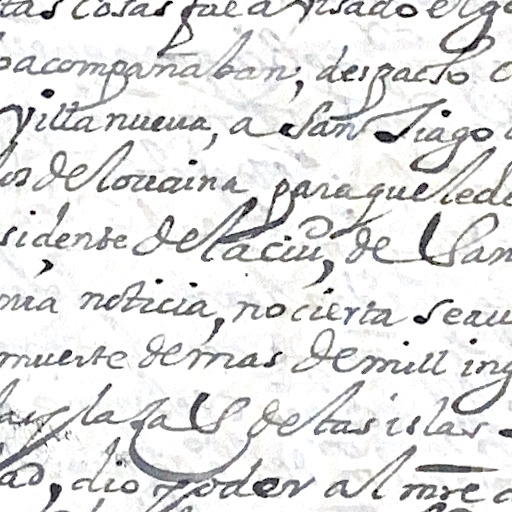 tas cosas fue avisado el go
oacompañaban, despacho
Villanueva, a San Tiago
los de lovaina para que le de
sidente de la ciud, de San
nia noticia, no cierta se au
muerte de mas de mill ing
las de las islas
dio poder al mre